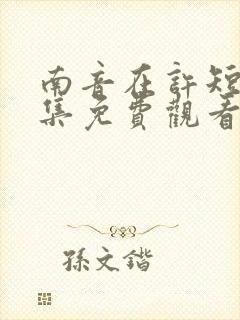 南音在許短
集免費觀看
孫文鍇